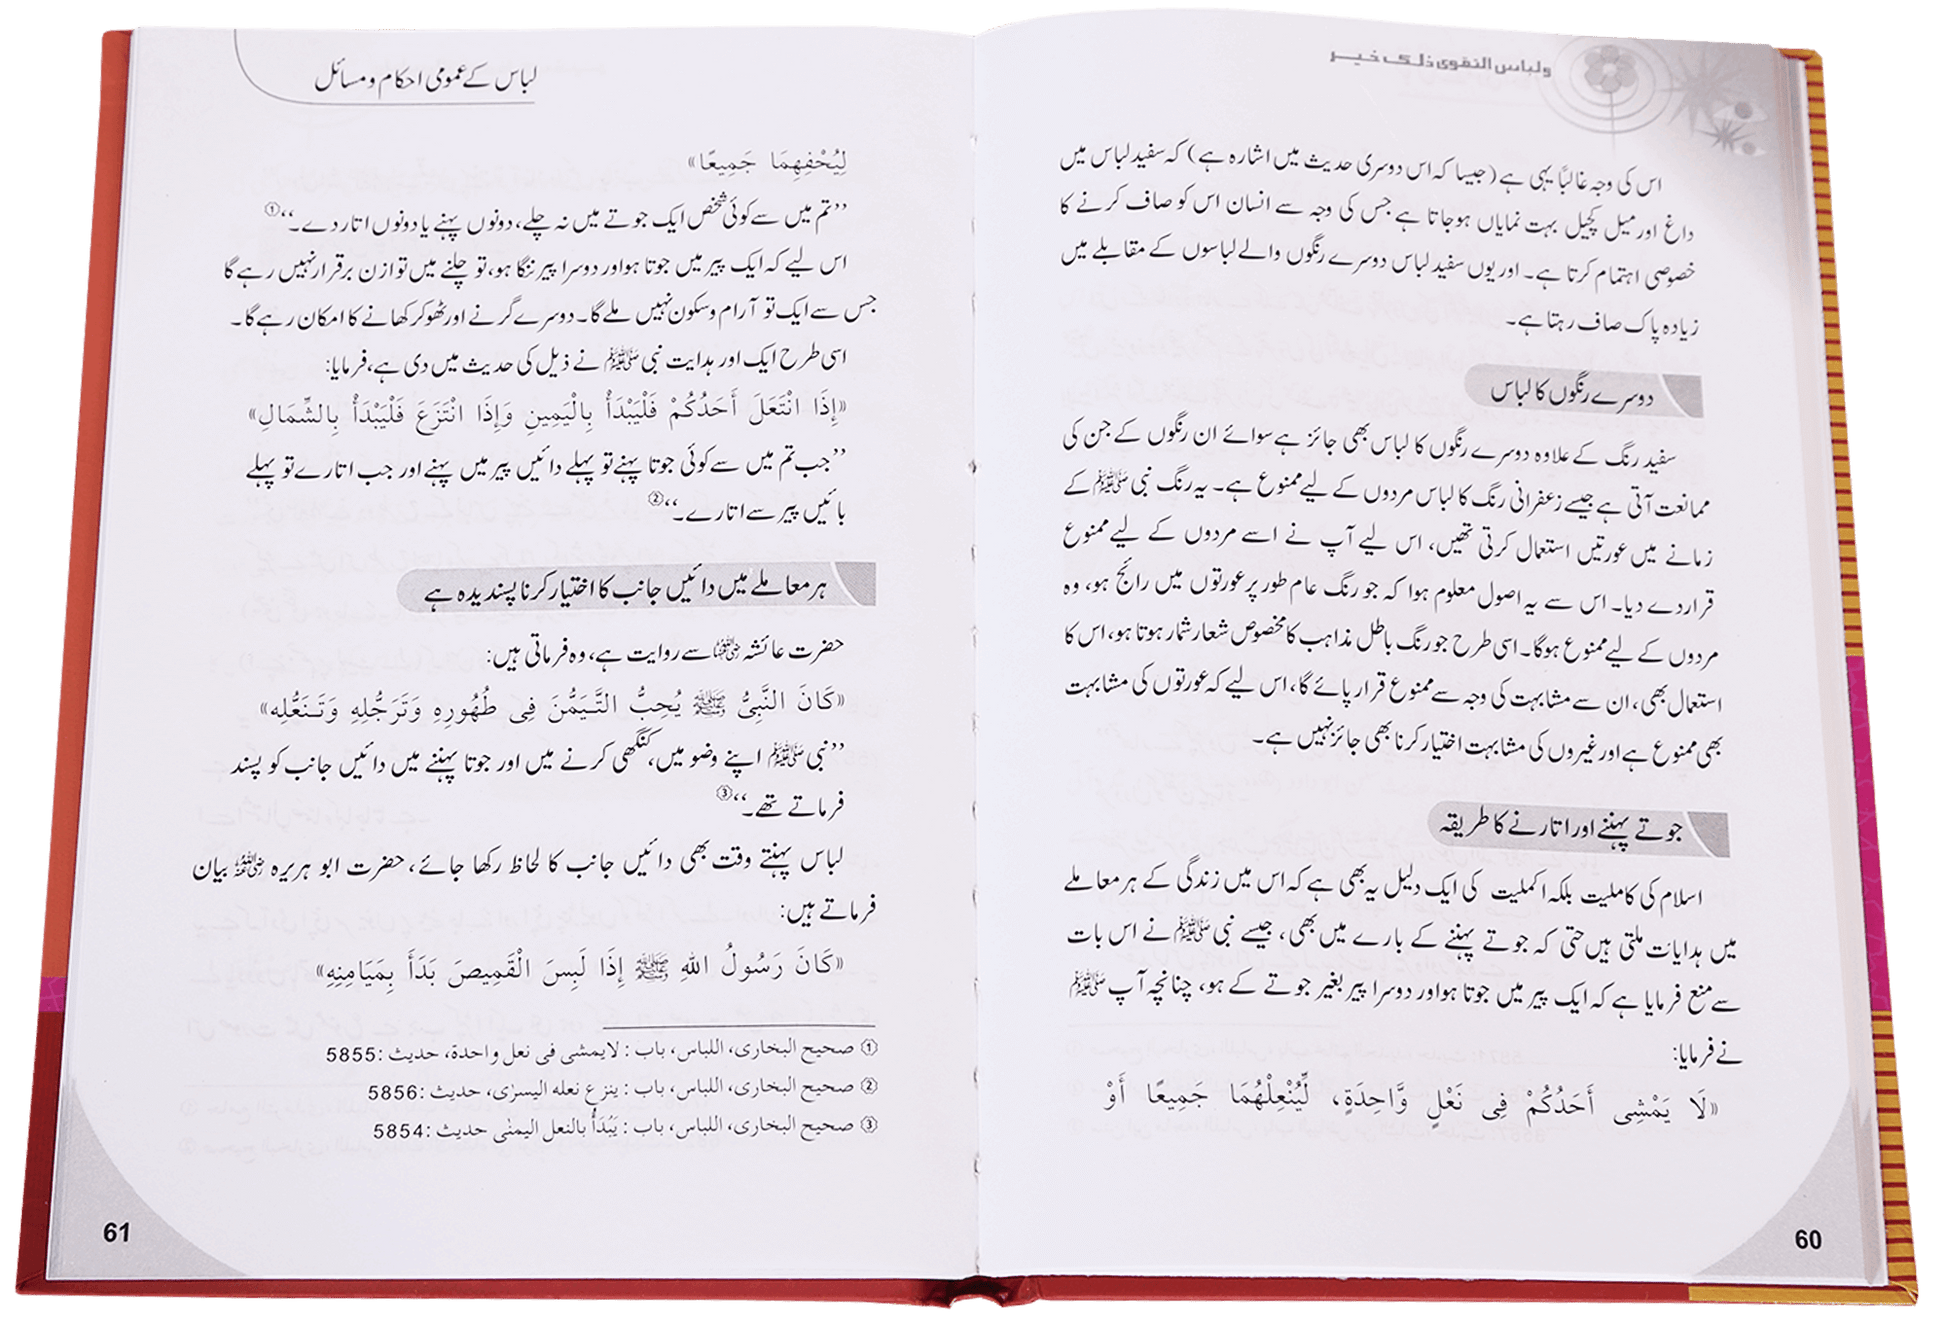 ولباس التقوى ذلك خير
اس کی وجہ غالبًا یہی ہے (جیسا کہ اس دوسری حدیث میں اشارہ ہے) کہ سفید لباس میں
داغ اور میل کچیل بہت نمایاں ہوجاتا ہے جس کی وجہ سے انسان اس کو صاف کرنے کا
خصوصی اہتمام کرتا ہے۔ اور یوں سفید لباس دوسرے رنگوں والے لباسوں کے مقابلے میں
زیادہ پاک صاف رہتا ہے۔
دوسرے رنگوں کا لباس
سفید رنگ کے علاوہ دوسرے رنگوں کا لباس بھی جائز ہے سوائے ان رنگوں کے جن کی
ممانعت آتی ہے جیسے زعفرانی رنگ کا لباس مردوں کے لیے ممنوع ہے۔ یہ رنگ نبی ﷺ کے
زمانے میں عورتیں استعمال کرتی تھیں، اس لیے آپ نے اسے مردوں کے لیے ممنوع
قرار دے دیا۔ اس سے یہ اصول معلوم ہوا کہ جو رنگ عام طور پر عورتوں میں رائج ہو، وہ
مردوں کے لیے ممنوع ہوگا۔ اسی طرح جو رنگ باطل مذاہب کا مخصوص شعار شمار ہوتا ہو، اس کا
استعمال بھی، ان سے مشابہت کی وجہ سے ممنوع قرار پائے گا، اس لیے کہ عورتوں کی مشابہت
بھی ممنوع ہے اور غیروں کی مشابہت اختیار کرنا بھی جائز نہیں ہے۔
جوتے پہننے اور اتارنے کا طریقہ
اسلام کی کاملیت بلکہ اکملیت کی ایک دلیل یہ بھی ہے کہ اس میں زندگی کے ہر معاملے
میں ہدایات ملتی ہیں حتی کہ جوتے پہننے کے بارے میں بھی، جیسے نبی ﷺ نے اس بات
سے منع فرمایا ہے کہ ایک پیر میں جوتا ہو اور دوسرا پیر بغیر جوتے کے ہو، چنانچہ آپ ﷺ
نے فرمایا:
«لَا يَمْشِى أَحَدُكُمْ فِى نَعْلٍ وَّاحِدَةٍ، لِّيُنْعِلْهُمَا جَمِيعًا أَوْ
60
لباس کے عمومی احکام و مسائل
لِيُحْفِهِمَا جَمِيعًا»
’’تم میں سے کوئی شخص ایک جوتے میں نہ چلے، دونوں پہنے یا دونوں اتار دے۔‘‘①
اس لیے کہ ایک پیر میں جوتا ہو اور دوسرا پیر ننگا ہو، تو چلنے میں توازن برقرار نہیں رہے گا
جس سے ایک تو آرام و سکون نہیں ملے گا۔ دوسرے گرنے اور ٹھوکر کھانے کا امکان رہے گا۔
اسی طرح ایک اور ہدایت نبی ﷺ نے ذیل کی حدیث میں دی ہے، فرمایا:
«إِذَا انْتَعَلَ أَحَدُكُمْ فَلْيَبْدَأْ بِالْيَمِينِ وَإِذَا انْتَزَعَ فَلْيَبْدَأْ بِالشِّمَالِ»
’’جب تم میں سے کوئی جوتا پہنے تو پہلے دائیں پیر میں پہنے اور جب اتارے تو پہلے
بائیں پیر سے اتارے۔‘‘②
ہر معاملے میں دائیں جانب کا اختیار کرنا پسندیدہ ہے
حضرت عائشہ ؓ سے روایت ہے، وہ فرماتی ہیں:
«كَانَ النَّبِىُّ ﷺ يُحِبُّ التَّيَمُّنَ فِى طُهُورِهِ وَتَرَجُّلِهِ وَتَنَعُّلِهِ»
’’نبی ﷺ اپنے وضو میں، کنگھی کرنے میں اور جوتا پہننے میں دائیں جانب کو پسند
فرماتے تھے۔‘‘③
لباس پہنتے وقت بھی دائیں جانب کا لحاظ رکھا جائے، حضرت ابو ہریرہ ؓ بیان
فرماتے ہیں:
«كَانَ رَسُولُ اللهِ ﷺ إِذَا لَبِسَ الْقَمِيصَ بَدَأَ بِمَيَامِنِهِ»
① صحيح البخارى، اللباس، باب : لايمشى فى نعل واحدة، حديث : 5855
② صحيح البخارى، اللباس، باب : ينزع نعله اليسرٰى، حديث : 5856
③ صحيح البخارى، اللباس، باب : يَبْدَأُ بالنعل اليمنٰى حديث : 5854
61